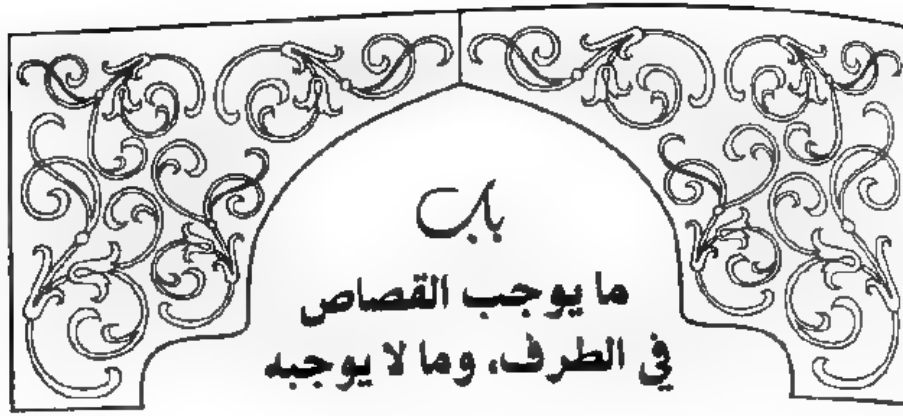 باب
ما يوجب القصاص
في الطرف، وما لا يوجبه